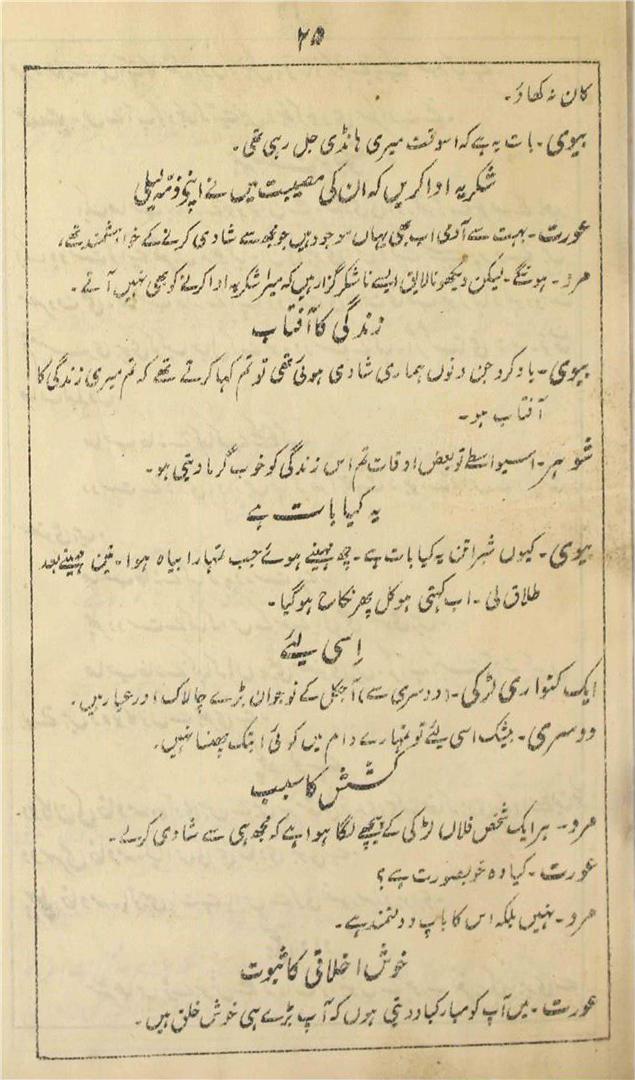 ۲۵
کان نہ کھاؤ۔
بیوی۔ بات یہ ہے کہ اسوقت میری ہانڈی جل رہی تھی۔
شکریہ ادا کریں کہ ان کی مصیبت میں نے اپنے ذمہ لیلی
عورت۔ بہت سے آدمی اب بھی یہاں موجود ہیں جو مجھ سے شادی کرنے کے خواہشمند تھے،
مرد۔ ہونگے۔ لیکن دیکھو نالایق ایسے ناشکر گزار ہیں کہ میرا شکریہ ادا کرنے کو بھی نہیں آتے۔
زندگی کا آفتاب
بیوی۔ یاد کرو جن دنوں ہماری شادی ہوئی تھی تو تم کہا کرتے تھے کہ تم میری زندگی کا
آفتاب ہو۔
شوہر۔ اسیواسطے تو بعض اوقات تم اس زندگی کو خوب گرما دیتی ہو۔
یہ کیا بات ہے
بیوی۔ کیوں شبراتن یہ کیا بات ہے۔ چھ مہینے ہوئے جب تمہارا بیاہ ہوا۔ تین مہینے بعد
طلاق لی۔ اب کہتی ہو کل پھر نکاح ہوگیا۔
اِسی لئے
ایک کنواری لڑکی۔ (دوسری سے) آجکل کے نوجوان بڑے چالاک اور عیار ہیں۔
دوسری۔ بیشک اسی لئے تو تمہارے دام میں کوئی ابتک پھنسا نہیں۔
کشش کا سبب
مرد۔ ہر ایک شخص فلاں لڑکی کے پیچھے لگا ہوا ہے کہ مجھ ہی سے شادی کرلے۔
عورت۔ کیا وہ خوبصورت ہے؟
مرد۔ نہیں بلکہ اس کا باپ دولتمند ہے۔
خوش اخلاقی کا ثبوت
عورت۔ میں آپ کو مبارکباد دیتی ہوں کہ آپ بڑے ہی خوش خلق ہیں۔